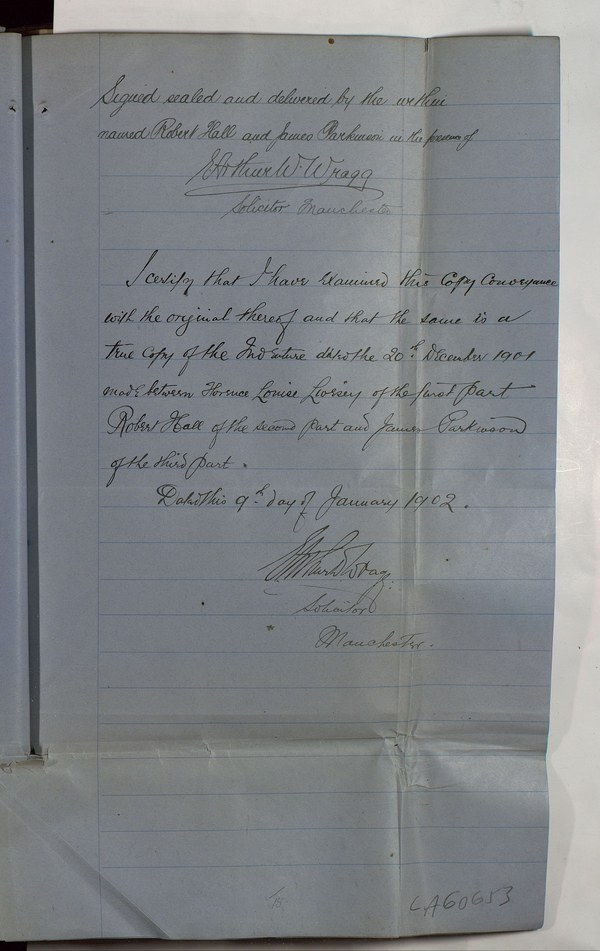 Signed sealed and delivered by the within
named Robert Hall and James Parkinson in the presence of
Arthur W. Wragg
Solicitor Manchester
I certify that I have examined this Copy Conveyance
with the original thereof and that the same is a
true Copy of the Indenture dated the 20th December 1901
made between Florence Louise Livesey of the first part
Robert Hall of the second part and James Parkinson
of the third part.
Dated this 9th day of January 1902.
Arthur W Wragg
Solicitor
Manchester.
CA60653